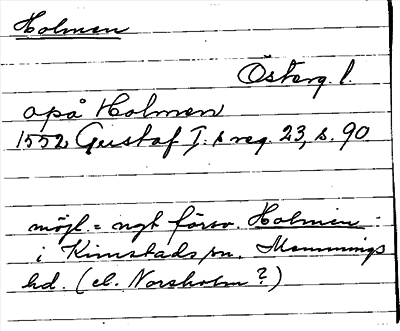 Holmen
Österg. l.
apå Holmen
1552 Gustaf I:s reg. 23, s. 90.
möjl. = ngt försv. Holmen
i Kimstads sn, Memmings
hd. (el. Norsholm?)